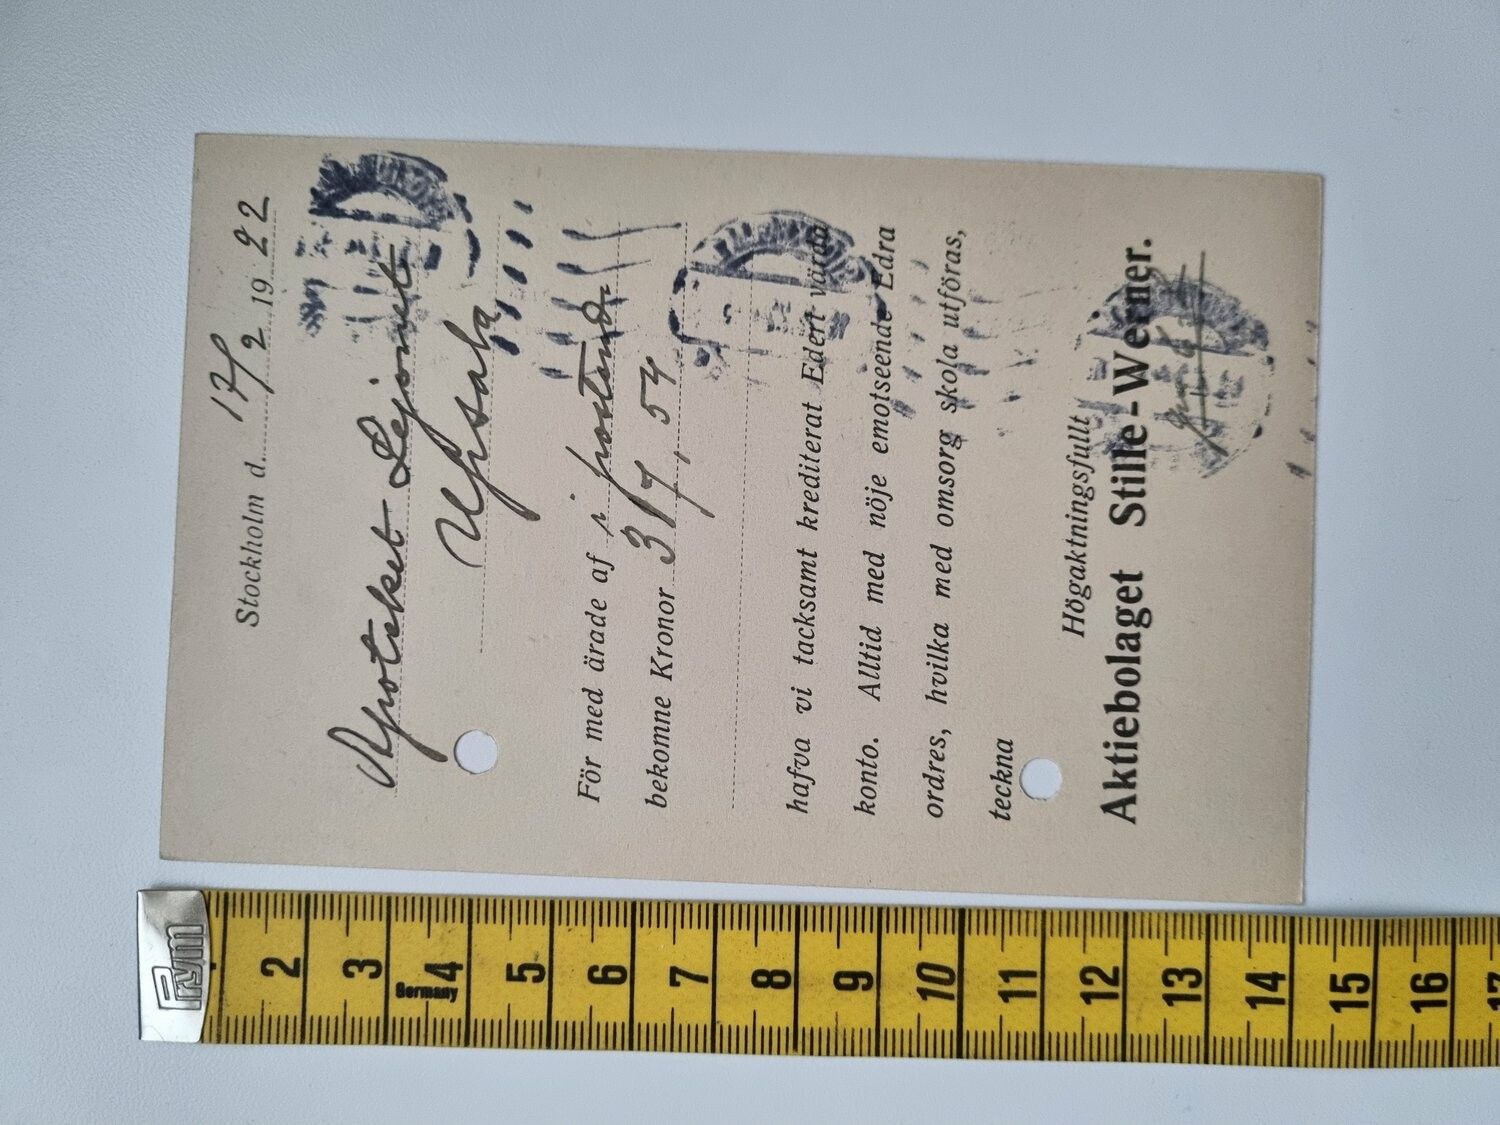 Stockholm d. 17/2 1922
Apoteket Lejonet
Upsala
För med ärade af i postanv.
bekomne Kronor 317,54
hafva vi tacksamt krediterat Edert värda
konto. Alltid med nöje emotseende Edra
ordres, hvilka med omsorg skola utföras,
teckna
Högaktningsfullt
Aktiebolaget Stille-Werner.
Prym
2 3 4 5 6 7 8 9 10 11 12 13 14 15 16 17
Germany